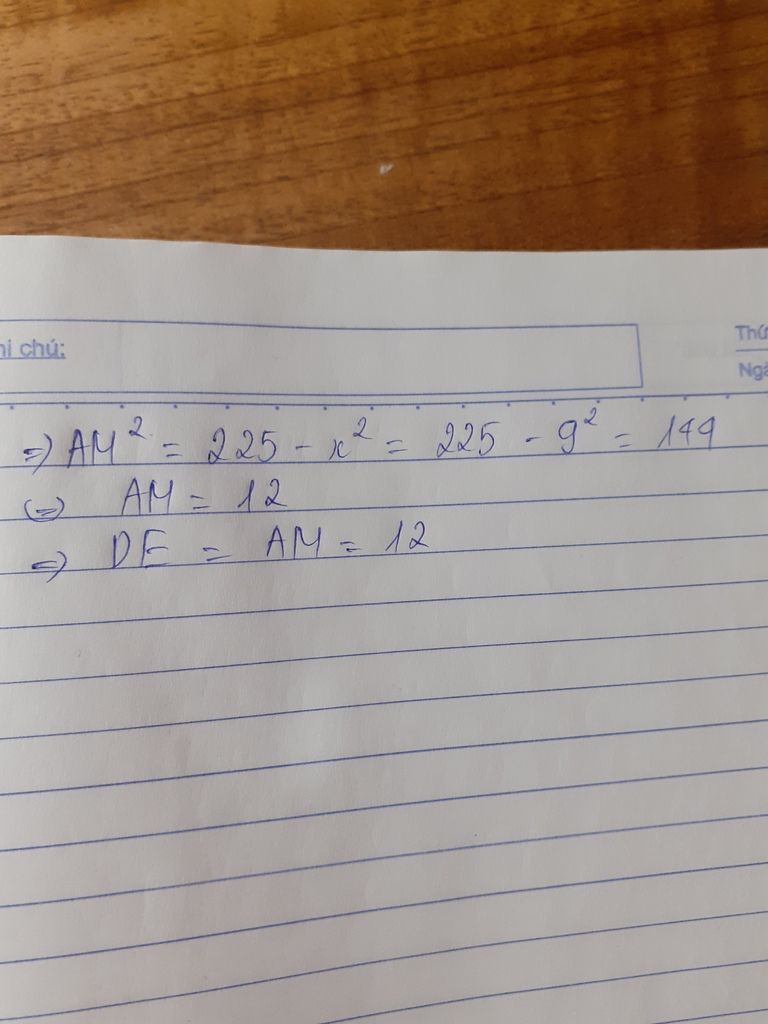 hi chú:
Thứ
Ngà
=> AM² = 225 - x² = 225 - 9² = 144
<=> AM = 12
=> DE = AM = 12